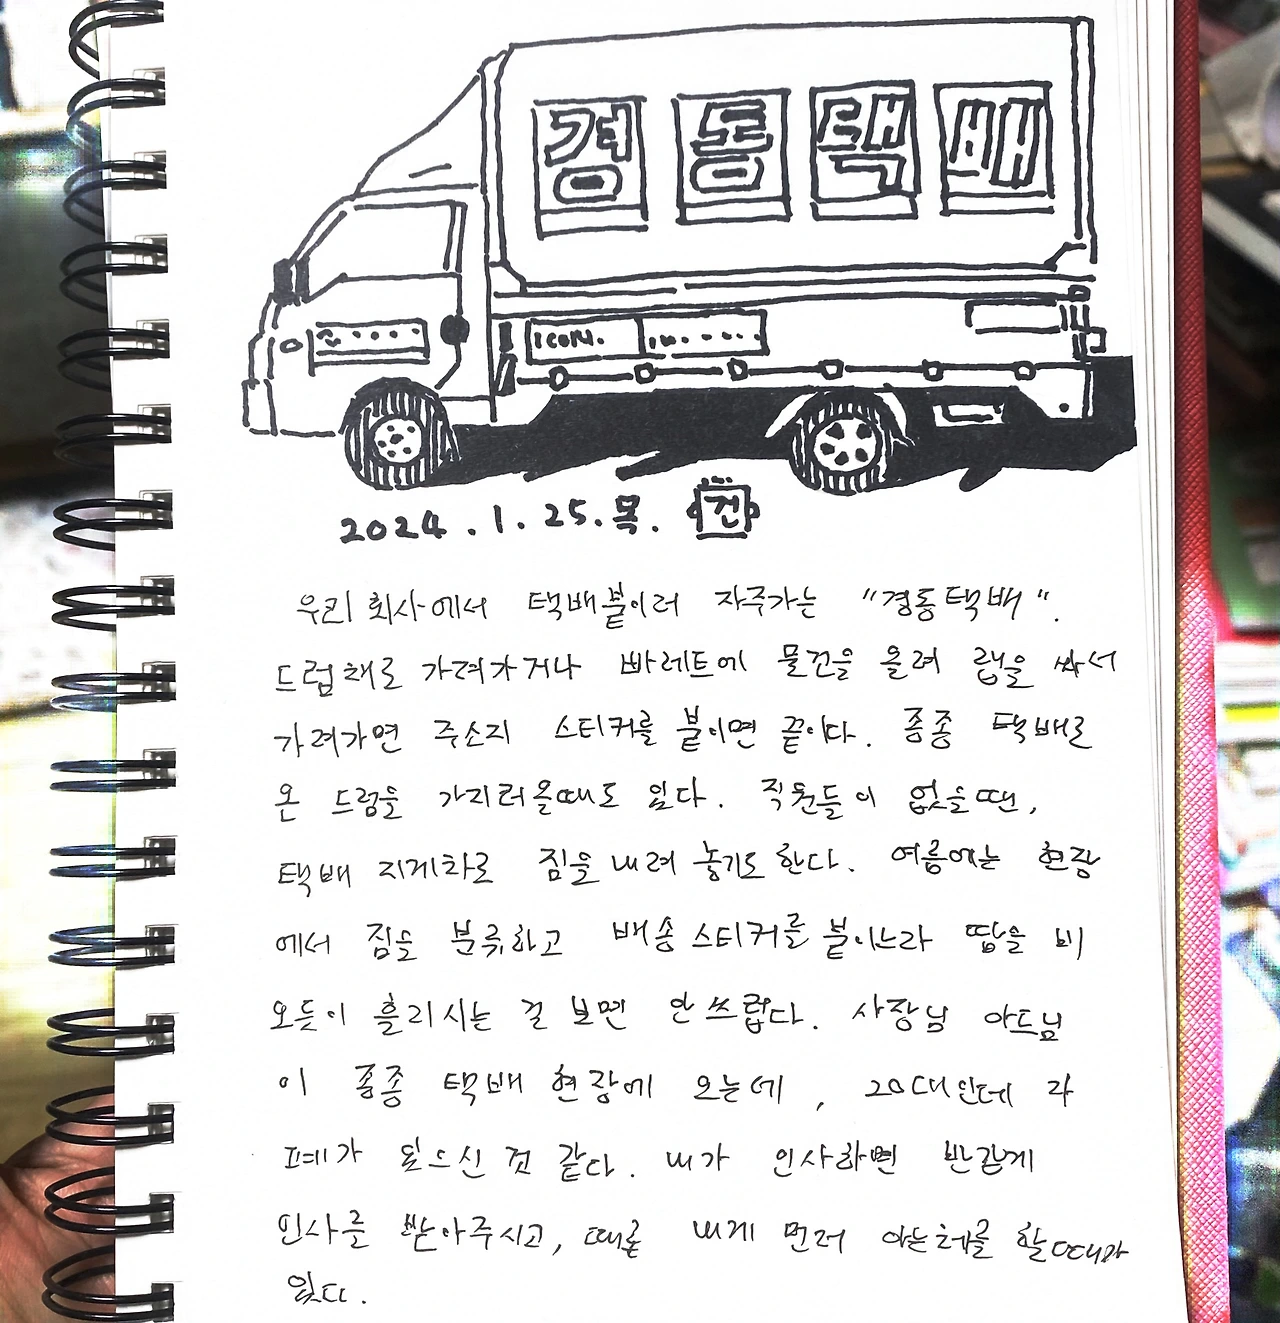 경동택배
2024.1.25.목. 건
우리 회사에서 택배붙이러 자주가는 "경동택배".
드럼채로 가져가거나 빠레트에 물건을 올려 랩을 싸서
가져가면 주소지 스티커를 붙이면 끝이다. 종종 택배로
온 드럼을 가지러 올때도 있다. 직원들이 없을땐,
택배 지게차로 짐을 내려 놓기도 한다. 여름에는 현장
에서 짐을 분류하고 배송 스티커를 붙이느라 땀을 비
오듯이 흘리시는 걸 보면 안쓰럽다. 사장님 아드님
이 종종 택배 현장에 오는데, 20대인데
가 있으신 것 같다. 내가 인사하면 반갑게
인사를 받아주시고, 때론 내게 먼저 아는체를 할때가
있다.